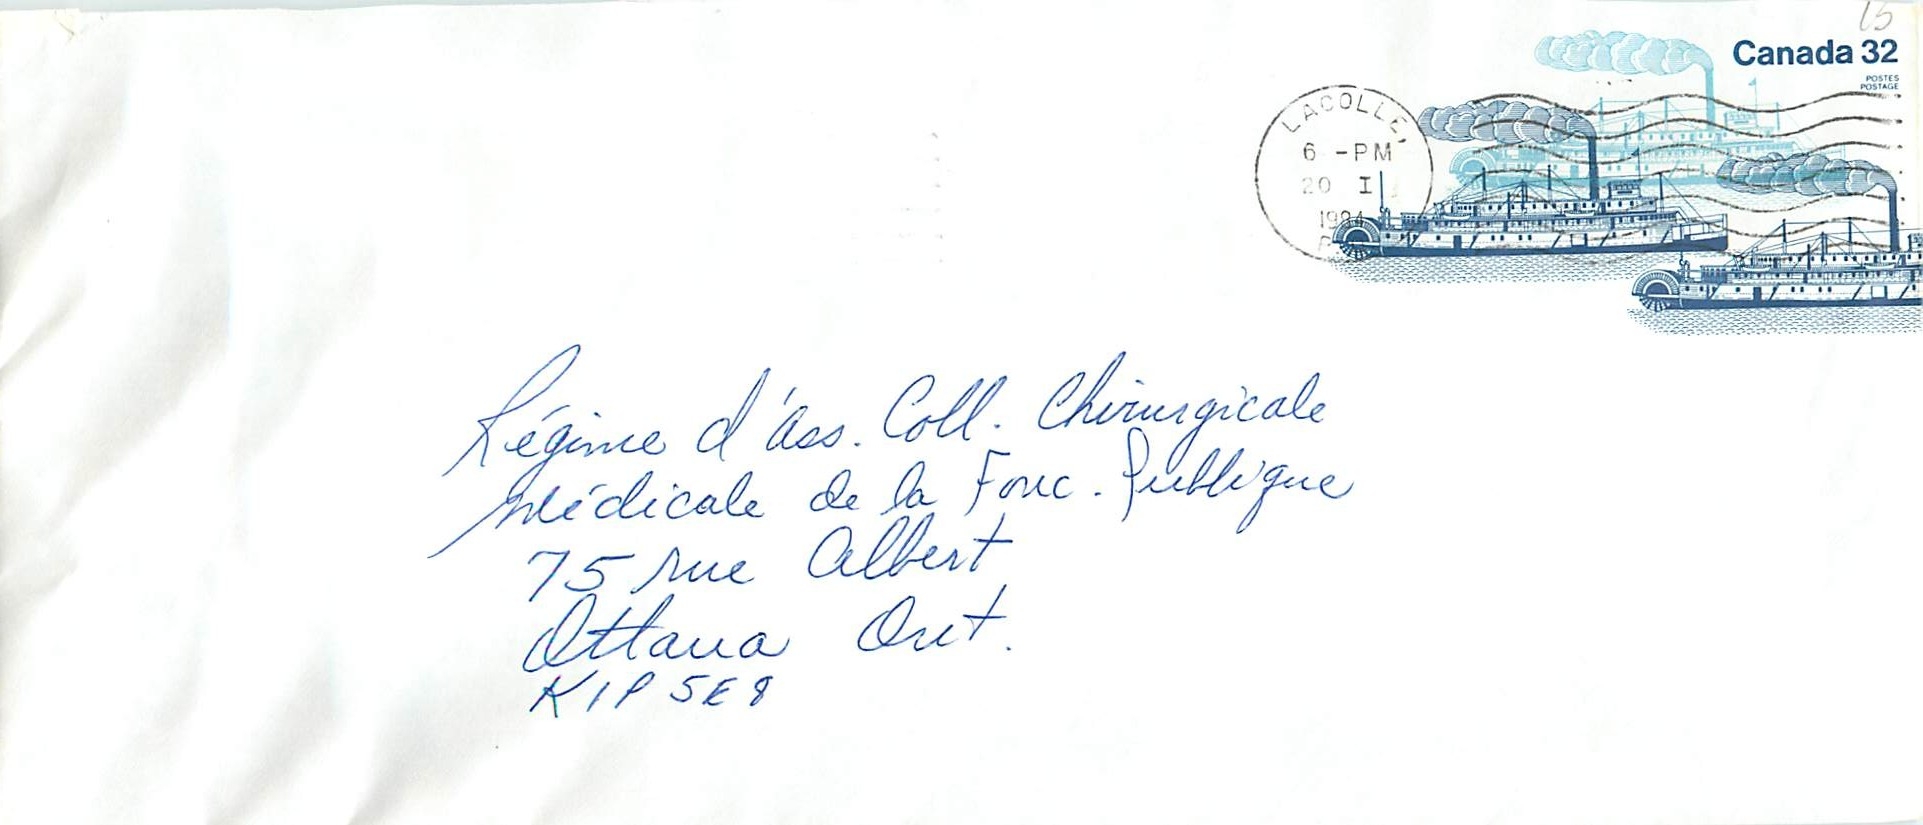 15
Canada 32
POSTES
POSTAGE
LACOLLE,
6 -PM
20 I
1984
P
Régime d'Ass. Coll. Chirurgicale
Médicale de la Fonc. Publique
75 rue Albert
Ottawa Ont.
K1P 5E8